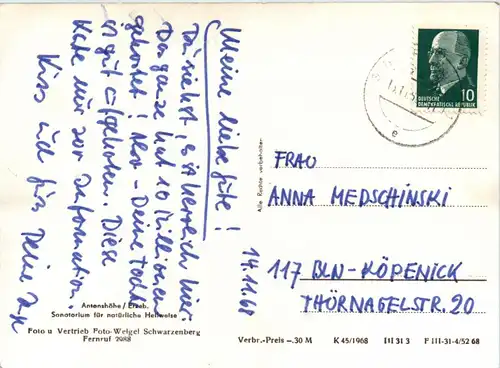 Meine liebe gute!
Du siehst, es ist herrlich hier.
Das ganze hat 10 Millionen
gekostet! Also - Deine Tochter
ist gut aufgehoben. Diese
Karte nur zur Information.
Kuss und Deine
14.11.68
Antonshöhe / Erzgeb.
Sanatorium für natürliche Heilweise
Foto u Vertrieb Foto-Weigel Schwarzenberg
Fernruf 2988
Alle Rechte vorbehalten
DEUTSCHE
DEMOKRATISCHE REPUBLIK
10
e
FRAU
ANNA MEDSCHINSKI
117 BLN-KÖPENICK
THÜRNAGELSTR. 20
Verbr.-Preis -.30 M K 45/1968 III 31 3 F III-31-4/52 68